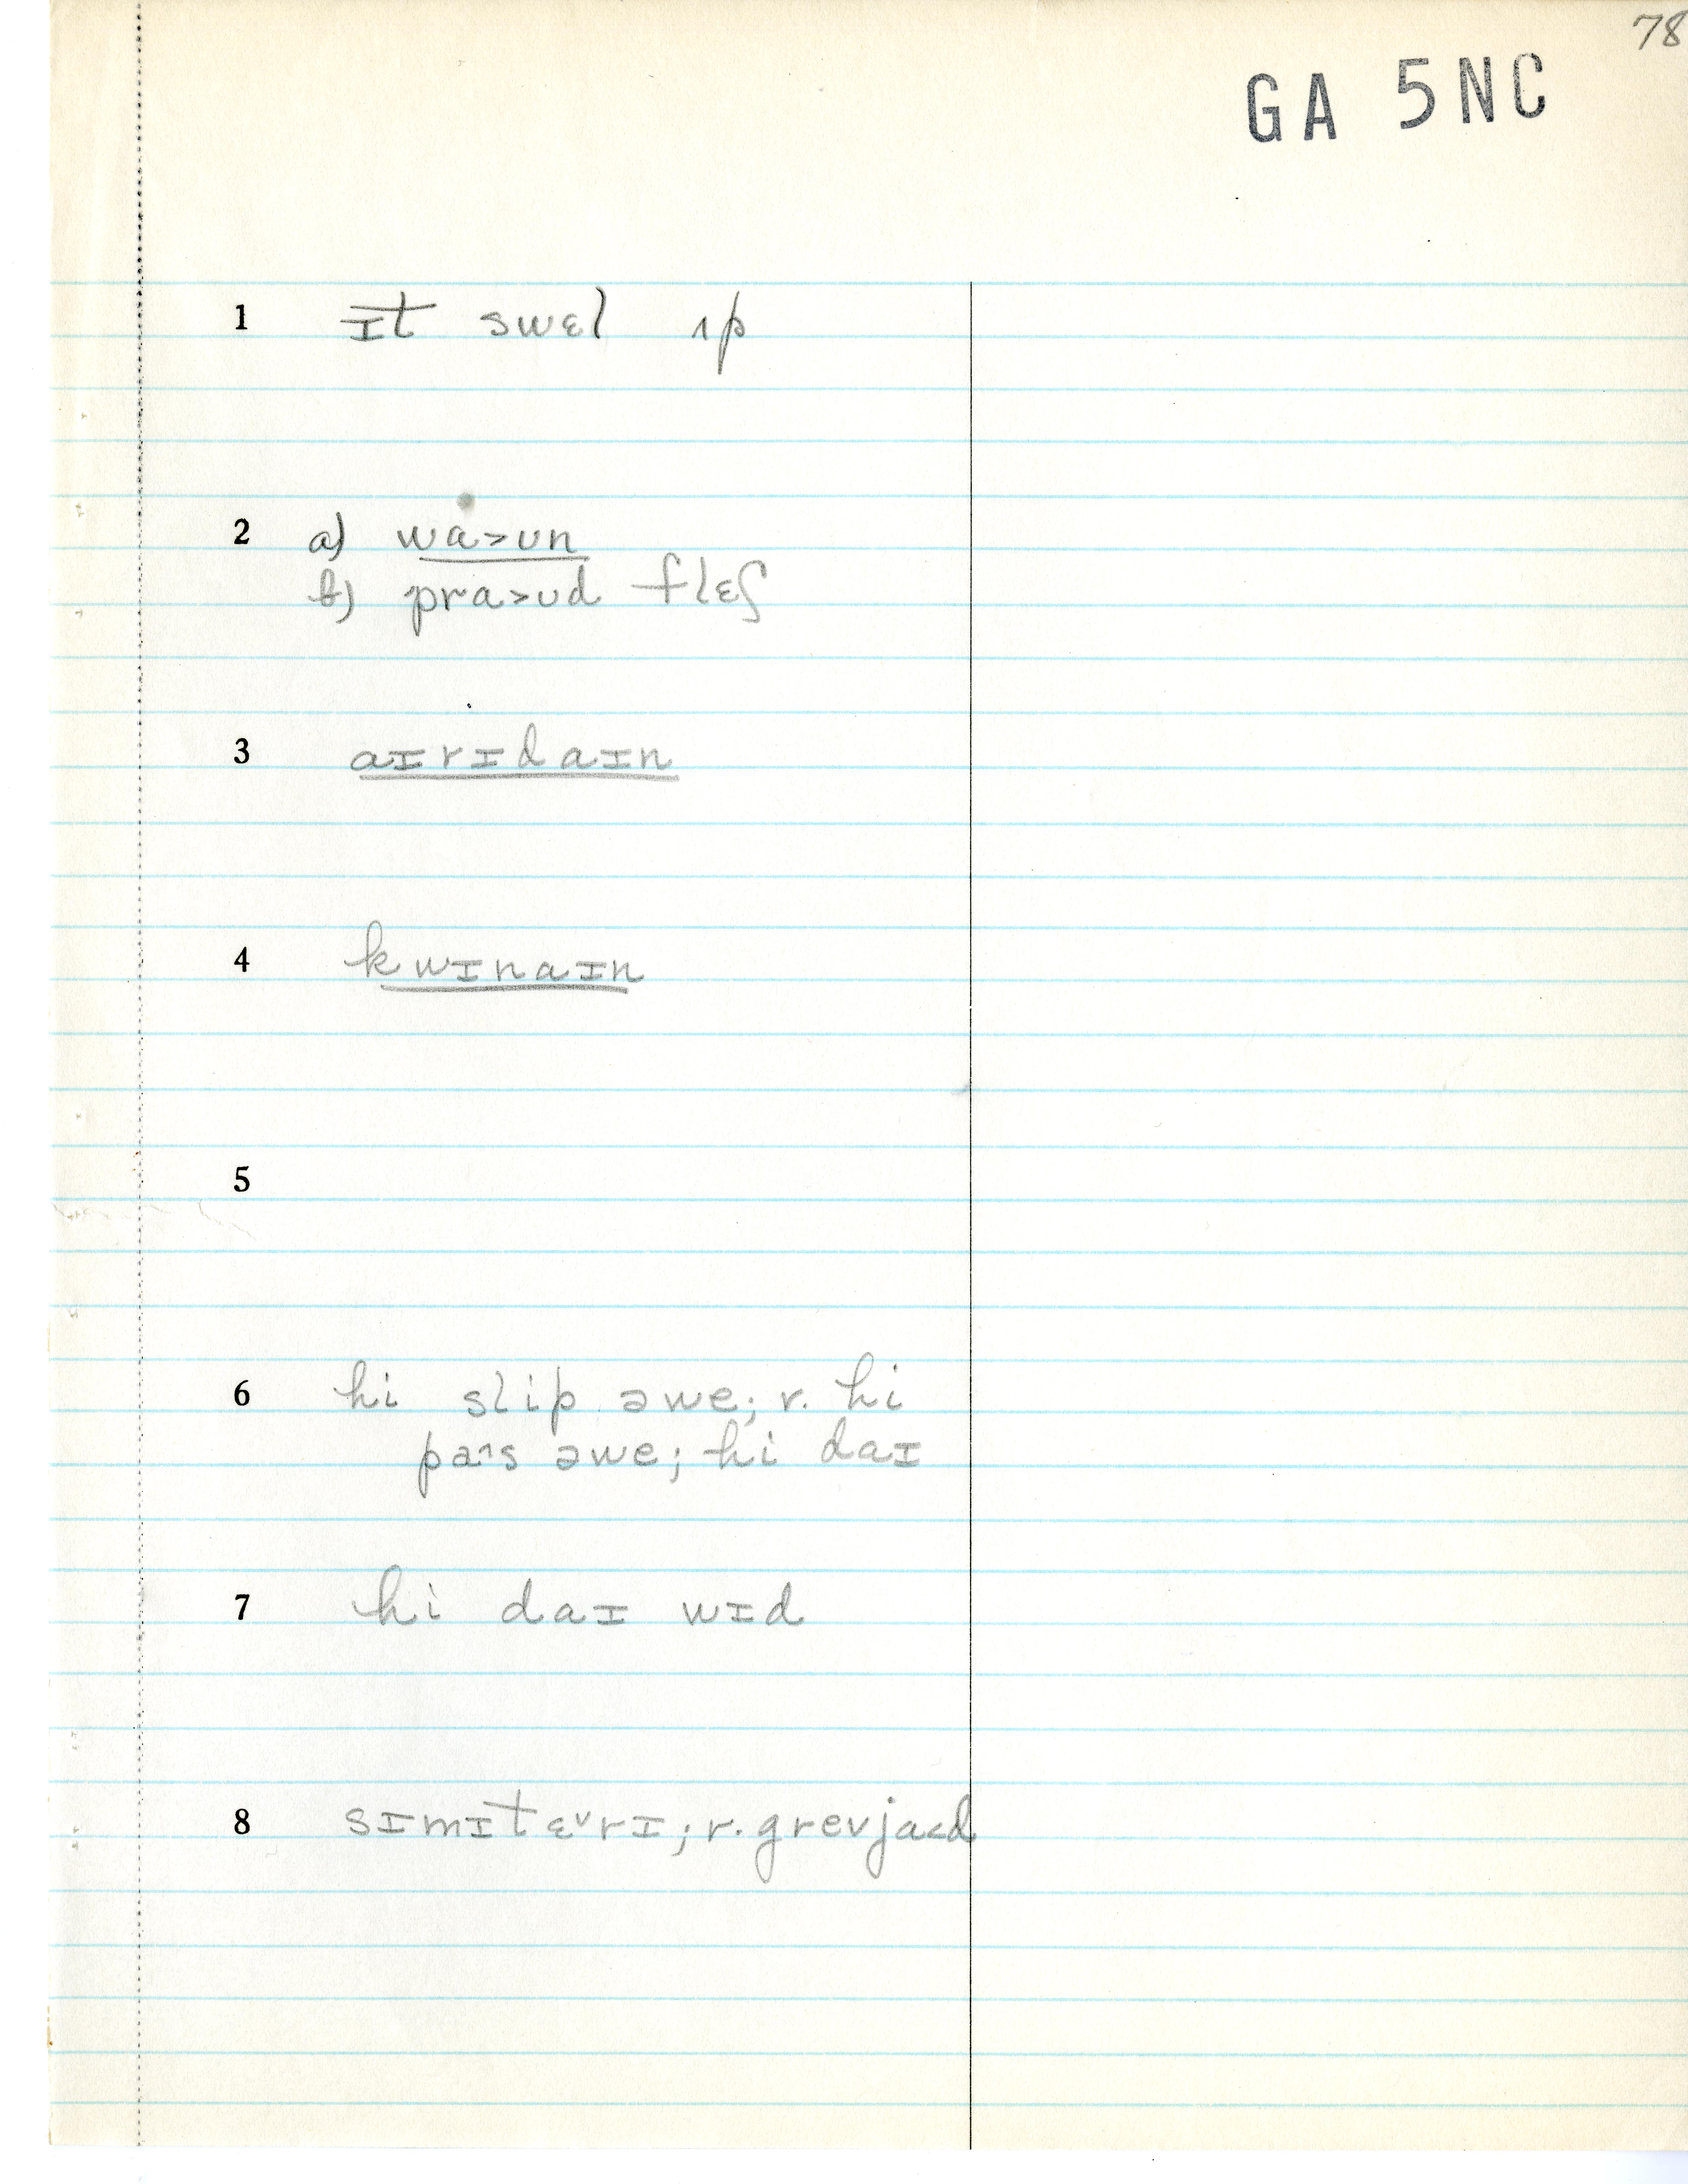 78
GA 5NC
1 ɪt swɛl ʌp
2 a) wa>ʊn
b) pra>ʊd flɛʃ
3 aɪrɪdaɪn
4 kwɪnaɪn
5
6 hi slip əwe; r. hi
pa^s əwe; hi daɪ
7 hi daɪ wɪd
8 sɪmɪtɛ˅rɪ; r. grevja<d